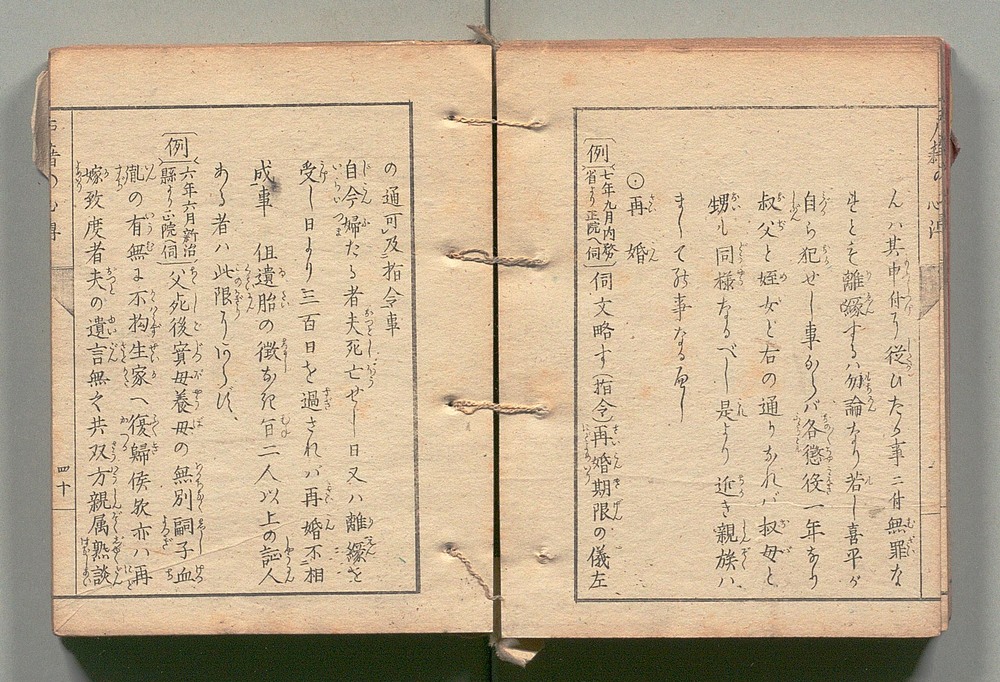 んハ其申付に従ひたる事ニ付無罪な
れとも離縁するハ勿論なり若し喜平が
自ら犯せし事ならバ各懲役一年なり
叔父と姪女と右の通りなれバ叔母と
甥も同様なるべし是より近き親族ハ
まして於事なる可し
⊙再婚
〔例〕七年九月内務省より正院へ伺 伺文略す(指令)再婚期限の儀左
の通可及指令事
自今婦たる者夫死亡せし日又ハ離縁を
受し日より三百日を過されバ再婚不相
成事 但遺胎の徴なき旨二人以上の証人
ある者ハ此限にあらず、
〔例〕六年六月新治縣より正院へ伺 父死後實母養母の無別嗣子血
胤の有無に不拘生家へ復歸候欤亦ハ再
嫁致度者夫の遺言無之共双方親属熟談
四十